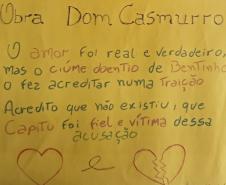 Obra Dom Casmurro
O amor foi real e verdadeiro,
mas o ciúme doentio de Bentinho
o fez acreditar numa traição
Acredito que não existiu, que
Capitu foi fiel e vítima dessa
acusação